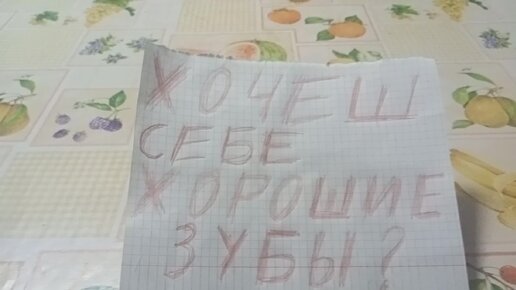 ХОЧЕШ
СЕБЕ
ХОРОШИЕ
ЗУБЫ?